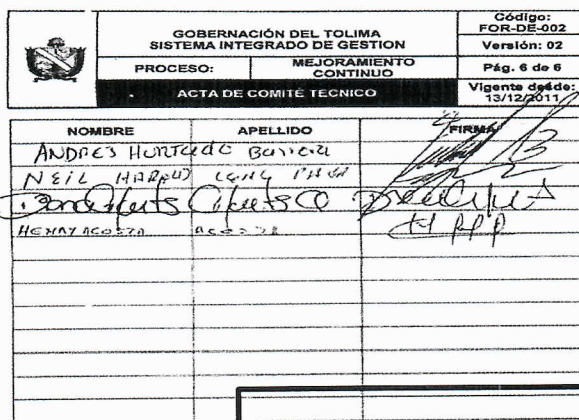 GOBERNACIÓN DEL TOLIMA
SISTEMA INTEGRADO DE GESTION
PROCESO:
MEJORAMIENTO
CONTINUO
ACTA DE COMITÉ TECNICO
Código:
FOR-DE-002
Versión: 02
Pág. 6 de 6
Vigente desde:
13/12/2011
NOMBRE APELLIDO FIRMA
ANDRES HURTADO
NEIL
HENRY ACOSTA